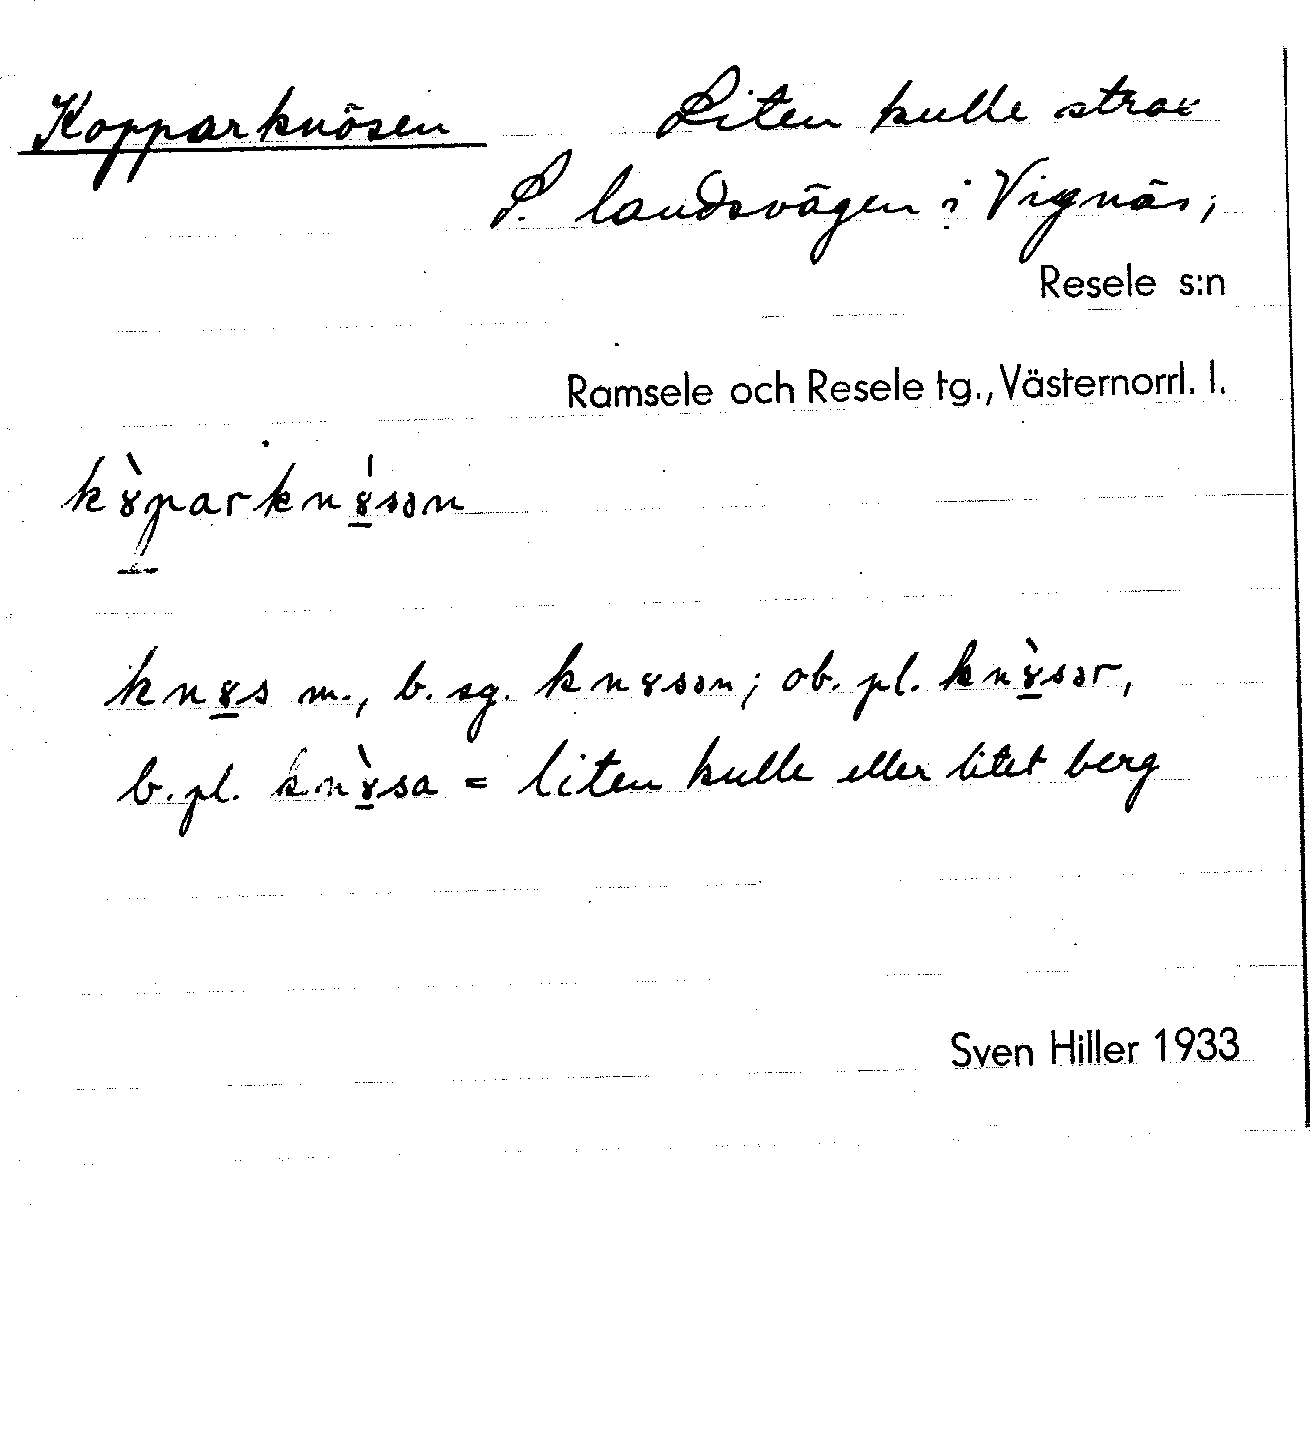 Kopparknösen Liten kulle strax
S. landsvägen i Vignäs,
Resele s:n
Ramsele och Resele tg., Västernorrl. l.
kɤ̀parknɤ̲́sən
knɤ̲s m., b. sg. knɤsən; ob. pl. knɤ̲̀sər,
b. pl. knɤ̲̀sa = liten kulle eller litet berg
Sven Hiller 1933